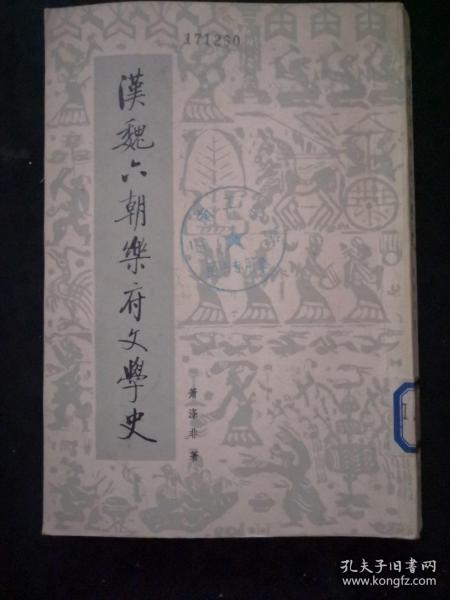 171260
漢魏六朝樂府文學史
蕭滌非著
孔夫子旧书网
www.kongfz.com